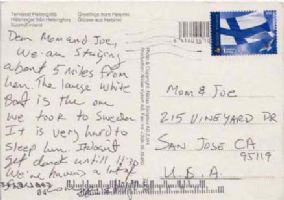 Terveisiä Helsingistä
Hälsningar från Helsingfors
Suomi/Finland
Greetings from Helsinki
Dear Mom and Joe,
We are Staying
about 5 miles from
here. The large white
Boat is the one
we took to Sweden
It is very hard to
sleep here. It doesnt
get dark until 11:30
We're having a lot of
Mom & Joe
215 VINEYARD DR
SAN JOSE CA
95119
U.S.A.